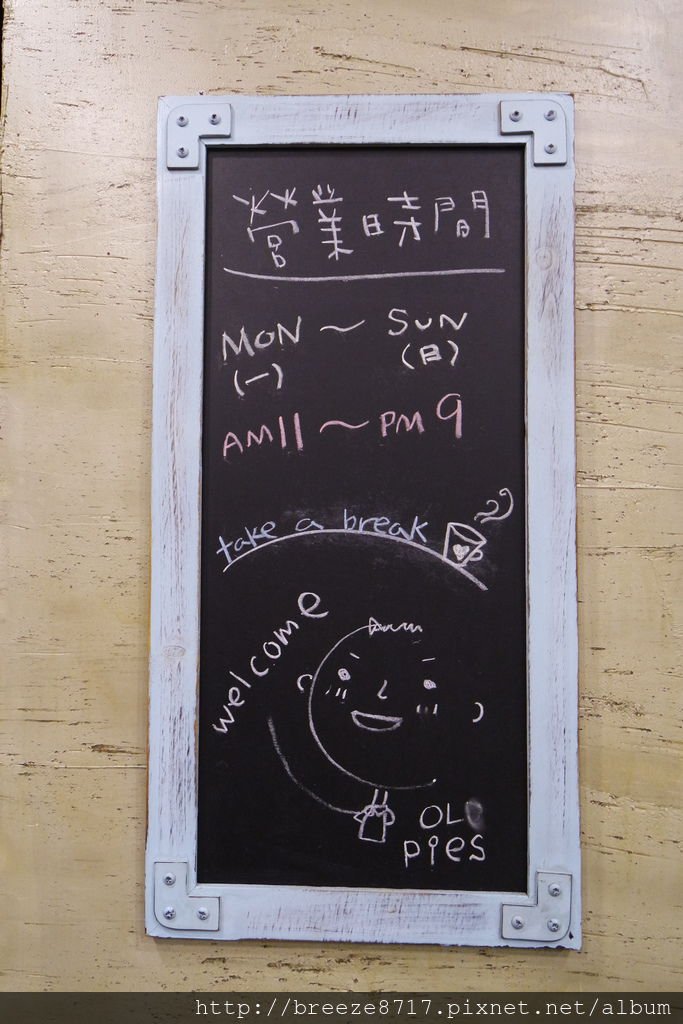 營業時間
MON ～ SUN
(一) (日)
AM11 ～ PM 9
take a break
welcome
OLD
pies
http://breeze8717.pixnet.net/album